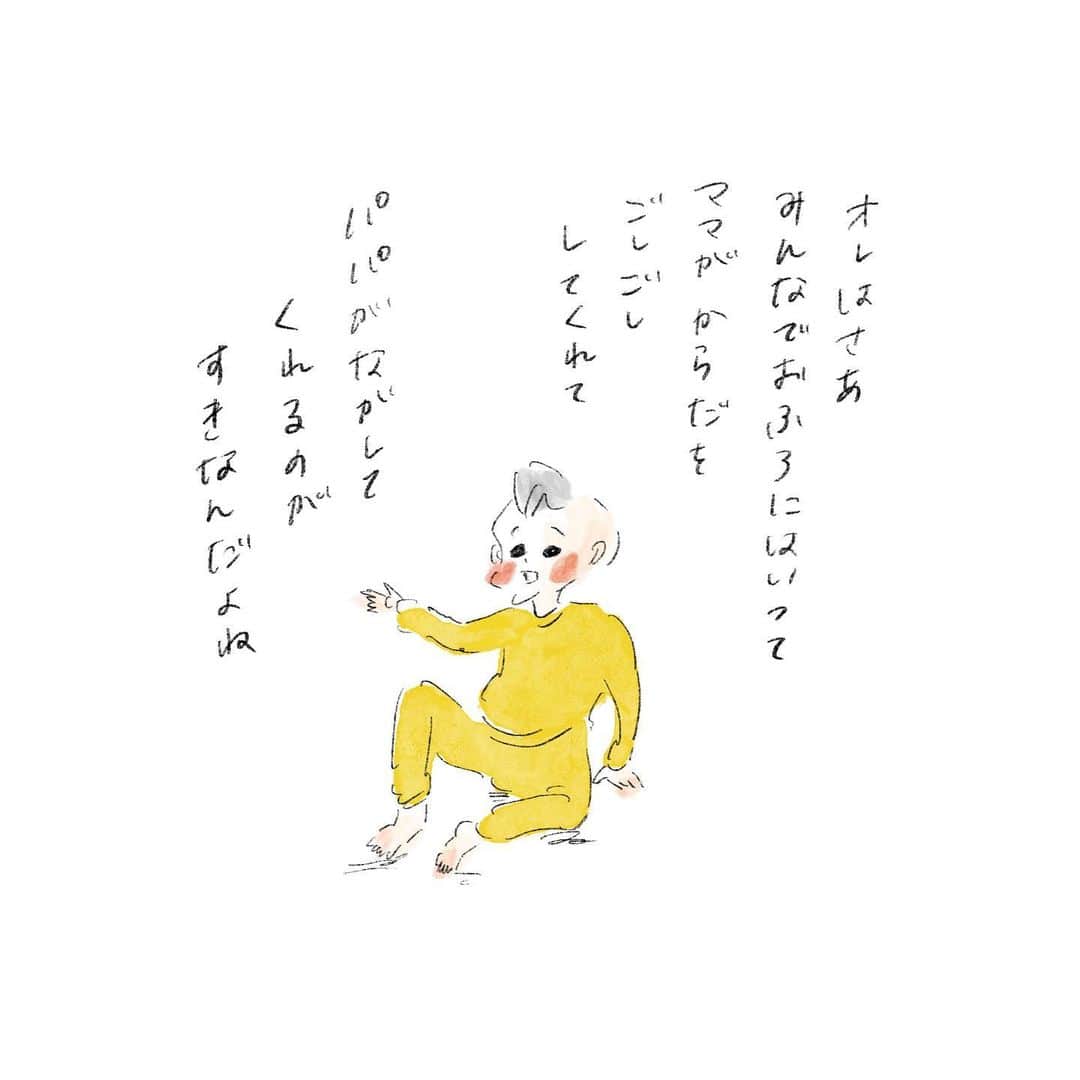 オレはさあ
みんなでおふろにはいって
ママが からだを
ごしごし
してくれて
パパがながして
くれるのが
すきなんだよね